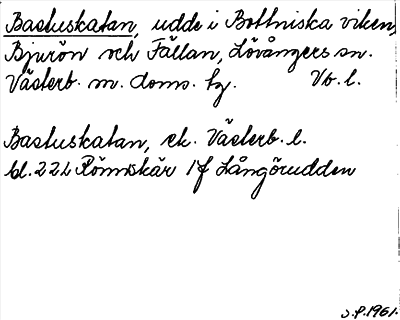 Bastuskatan, udde i Bottniska viken,
Bjurön och Fällan, Lövångers sn.
Västerb. m. doms. tg. Vb. l.
Bastuskatan, ek. Västerb. l.
bl. 22L Rönnskär 1f Långörudden
S.P. 1961.